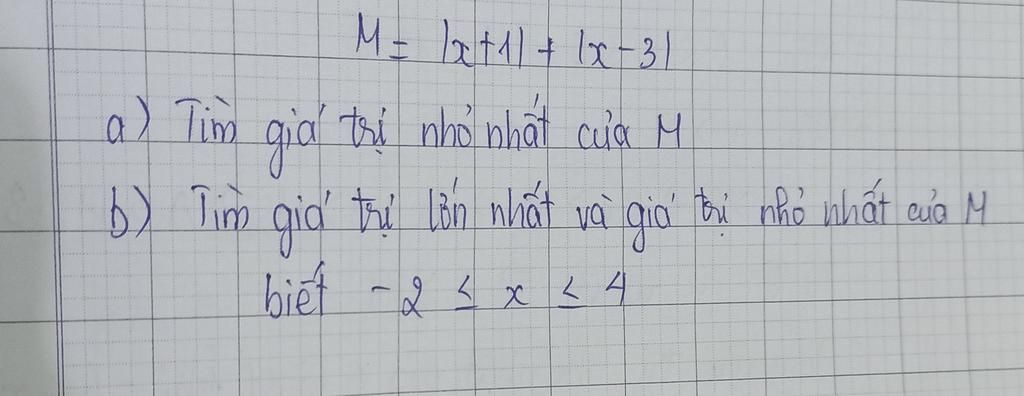 M = |x+1| + |x-3|
a) Tìm giá trị nhỏ nhất của M
b) Tìm giá trị lớn nhất và giá trị nhỏ nhất của M
biết -2 ≤ x ≤ 4